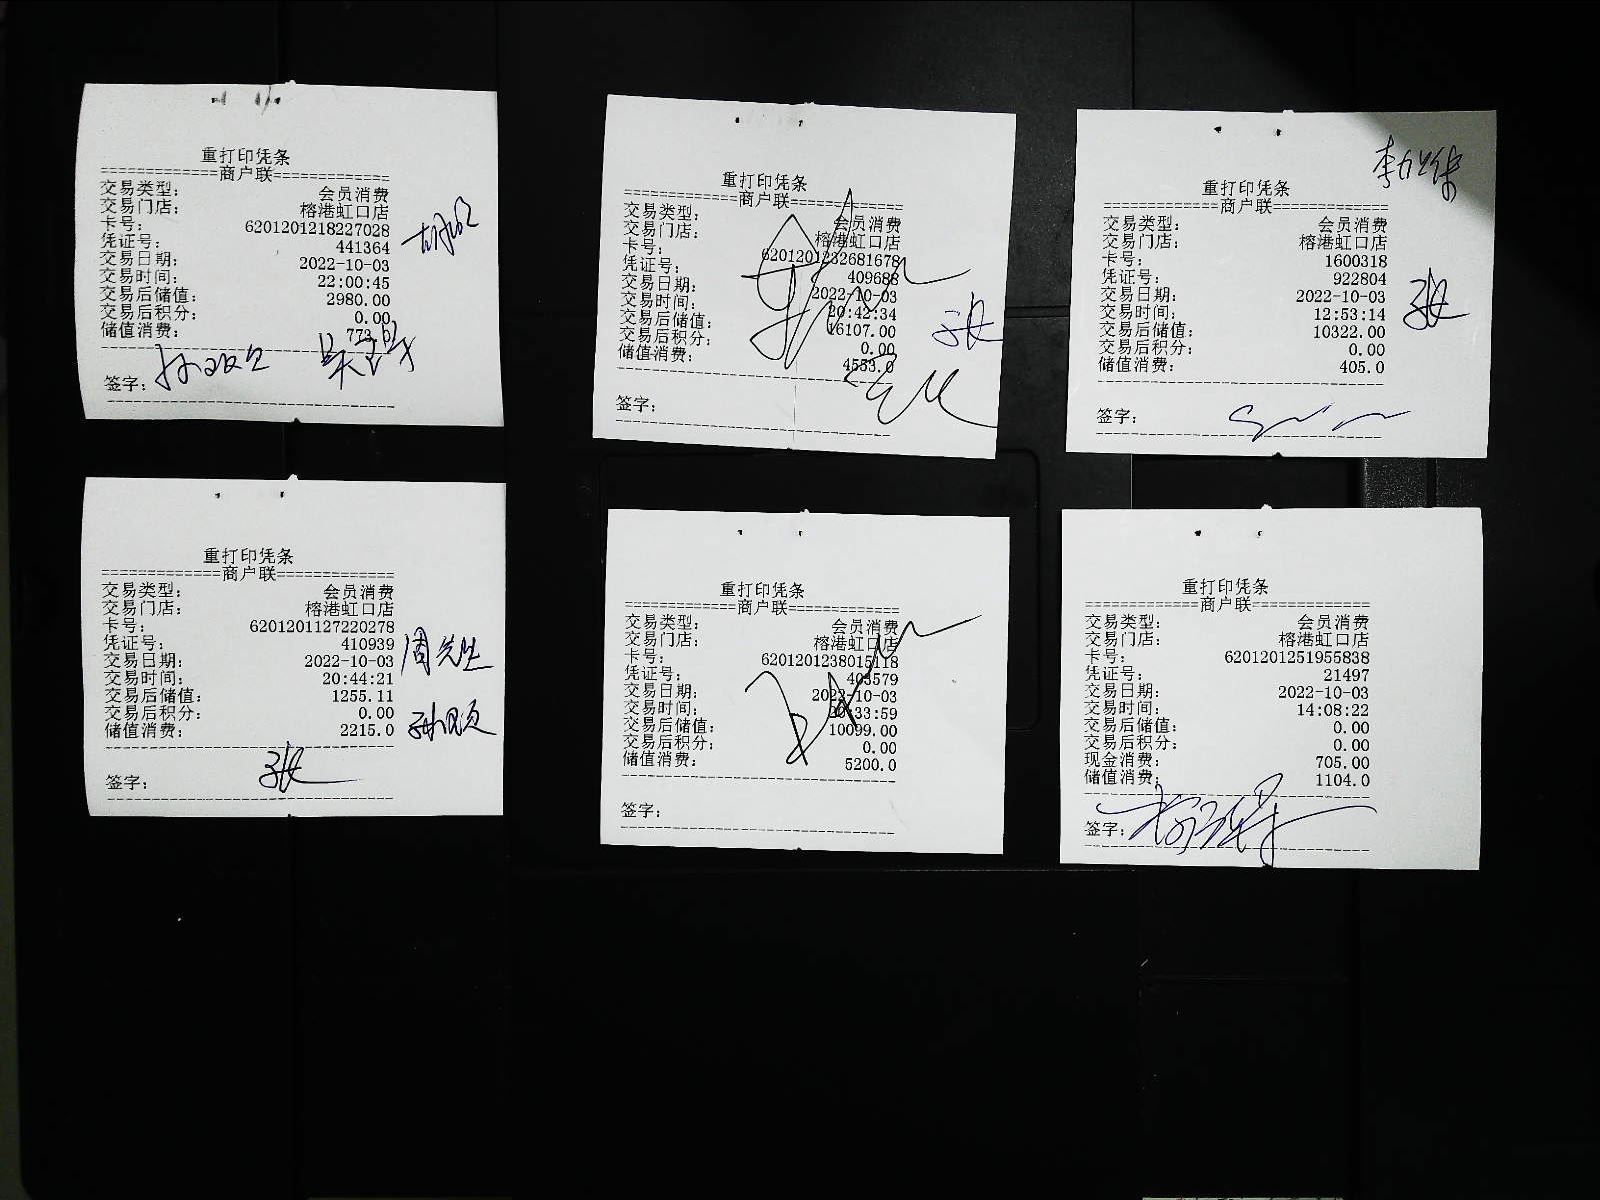 重打印凭条
=============商户联=============
交易类型： 会员消费
交易门店： 榕港虹口店
卡号： 6201201218227028
凭证号： 441364
交易日期： 2022-10-03
交易时间： 22:00:45
交易后储值： 2980.00
交易后积分： 0.00
储值消费：
签字：
重打印凭条
=============商户联=============
交易类型： 会员消费
交易门店： 榕港虹口店
卡号： 6201201232681678
凭证号： 409688
交易日期： 2022-10-03
交易时间： 20:42:34
交易后储值： 16107.00
交易后积分： 0.00
储值消费： 4553.0
张
签字：
重打印凭条
=============商户联=============
交易类型： 会员消费
交易门店： 榕港虹口店
卡号： 1600318
凭证号： 922804
交易日期： 2022-10-03
交易时间： 12:53:14
交易后储值： 10322.00
交易后积分： 0.00
储值消费： 405.0
张
签字：
重打印凭条
=============商户联=============
交易类型： 会员消费
交易门店： 榕港虹口店
卡号： 6201201127220278
凭证号： 410939
交易日期： 2022-10-03
交易时间： 20:44:21
交易后储值： 1255.11
交易后积分： 0.00
储值消费： 2215.0
周先生
张
签字：
重打印凭条
=============商户联=============
交易类型： 会员消费
交易门店： 榕港虹口店
卡号： 6201201238015118
凭证号： 403579
交易日期： 2022-10-03
交易时间： 20:33:59
交易后储值： 10099.00
交易后积分： 0.00
储值消费： 5200.0
签字：
重打印凭条
=============商户联=============
交易类型： 会员消费
交易门店： 榕港虹口店
卡号： 6201201251955838
凭证号： 21497
交易日期： 2022-10-03
交易时间： 14:08:22
交易后储值： 0.00
交易后积分： 0.00
现金消费： 705.00
储值消费： 1104.0
签字：